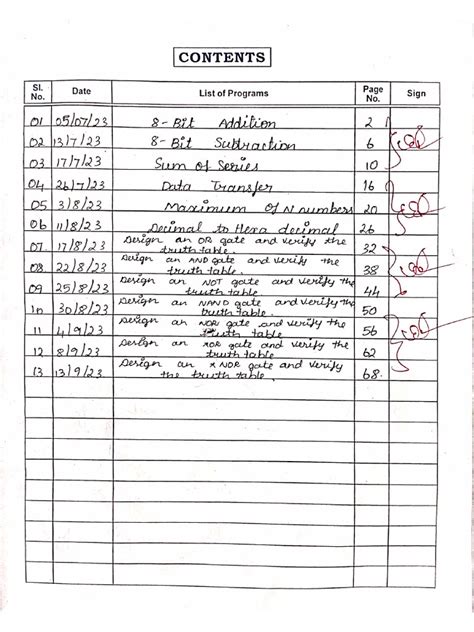 CONTENTS
Sl. No. Date List of Programs Page No. Sign
01 05/07/23 8-Bit Addition 2
02 13/7/23 8-Bit Subtraction 6
03 17/7/23 Sum of Series 10
04 26/7/23 Data Transfer 16
05 3/8/23 Maximum of N numbers 20
06 11/8/23 Decimal to Hexa decimal 26
07. 17/8/23 Design an OR gate and verify the truth table. 32
08. 22/8/23 Design an AND gate and verify the truth table. 38
09 25/8/23 Design an NOT gate and verify the truth table. 44
10 30/8/23 Design an NAND gate and verify the truth table. 50
11 4/9/23 Design an NOR gate and verify the truth table 56
12 8/9/23 Design an XOR gate and verify the truth table 62
13 13/9/23 Design an XNOR gate and verify the truth table. 68.